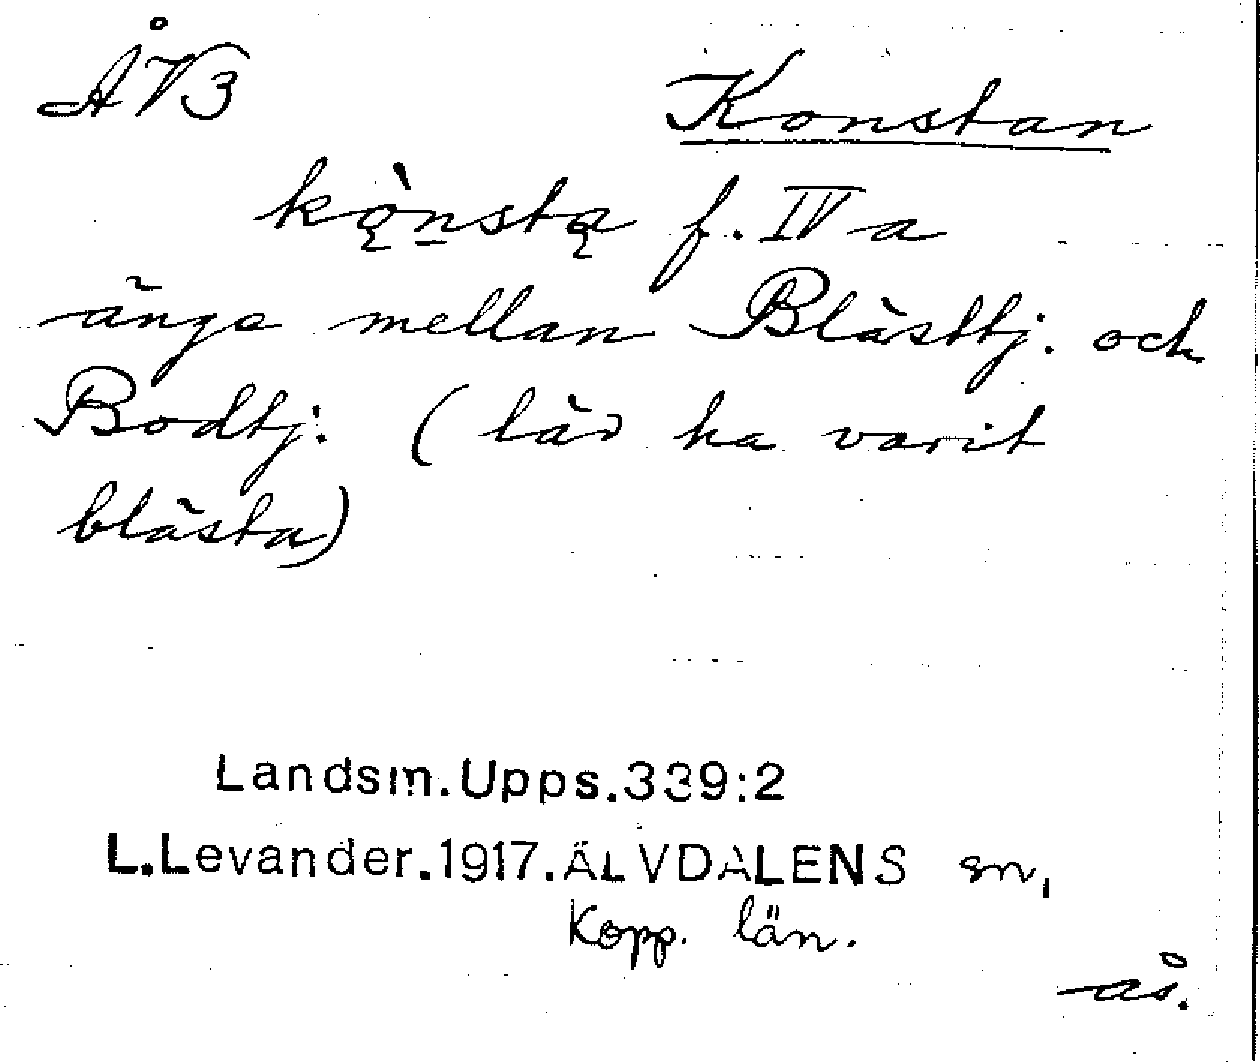 ÅV3 Konstan
kǫ̀n̲stą f. IV a
änge mellan Blästtj. och
Bodtj. (lär ha varit
blästa)
Landsm.Upps.339:2
L.Levander.1917.ÄLVDALENS sn,
Kopp. län.
ås.